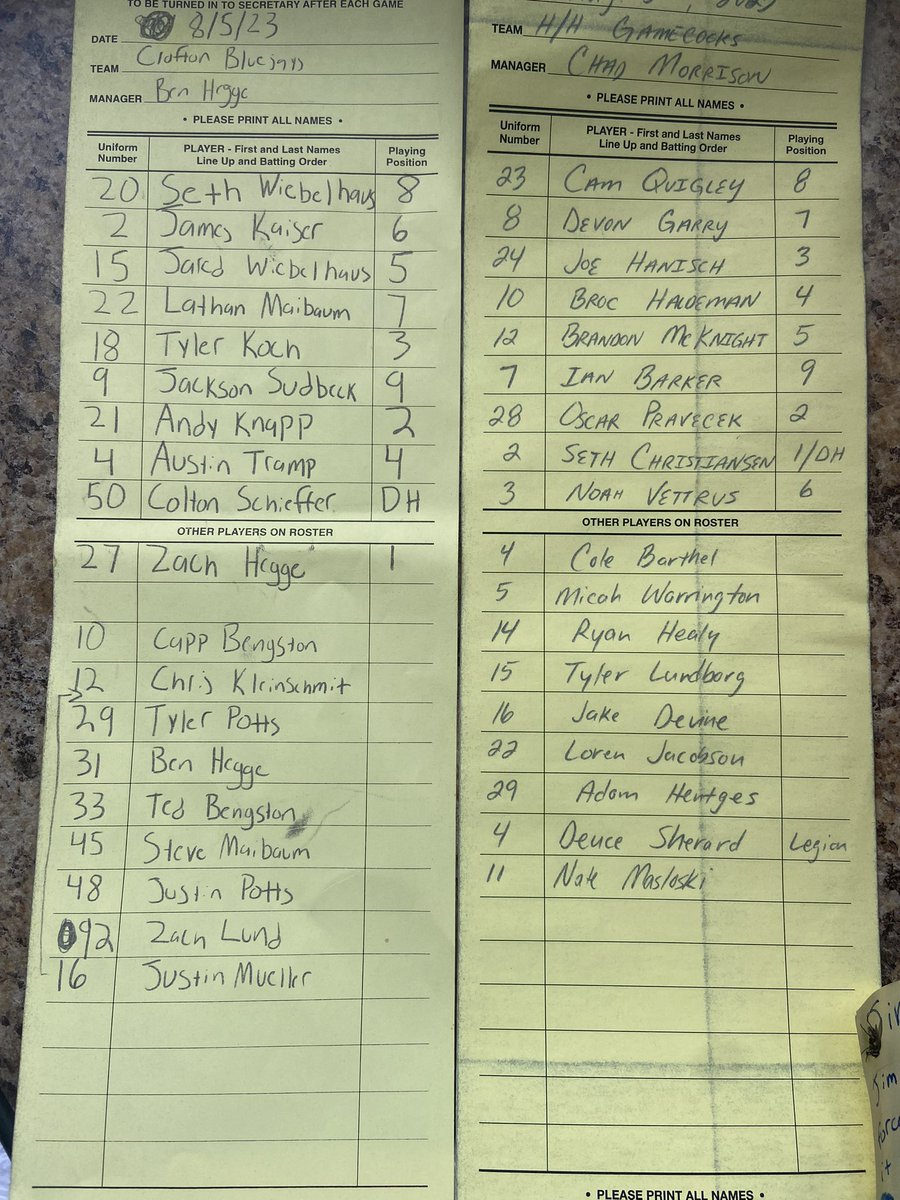 TO BE TURNED IN TO SECRETARY AFTER EACH GAME
DATE 8/5/23
TEAM Crofton Bluejays
MANAGER Ben Hegge
• PLEASE PRINT ALL NAMES •
Uniform Number PLAYER - First and Last Names Line Up and Batting Order Playing Position
20 Seth Wiebelhaus 8
2 James Kaiser 6
15 Jared Wiebelhaus 5
22 Lathan Maibaum 7
18 Tyler Koch 3
9 Jackson Sudbeck 9
21 Andy Knapp 2
4 Austin Tramp 4
50 Colton Schieffer DH
OTHER PLAYERS ON ROSTER
27 Zach Hegge 1
10 Capp Bengston
12 Chris Kleinschmit
29 Tyler Potts
31 Ben Hegge
33 Ted Bengston
45 Steve Maibaum
48 Justin Potts
92 Zach Lund
16 Justin Mueller
TEAM H/H GAMECOCKS
MANAGER CHAD MORRISON
• PLEASE PRINT ALL NAMES •
Uniform Number PLAYER - First and Last Names Line Up and Batting Order Playing Position
23 CAM QUIGLEY 8
8 DEVON GARRY 7
24 JOE HANISCH 3
10 BROC HALDEMAN 4
12 BRANDON MCKNIGHT 5
7 IAN BARKER 9
28 OSCAR PRAVECEK 2
2 SETH CHRISTIANSEN 1/DH
3 NOAH VETTRUS 6
OTHER PLAYERS ON ROSTER
4 Cole Barthel
5 Micah Warrington
14 Ryan Healy
15 Tyler Lundborg
16 Jake Devine
22 Loren Jacobson
29 Adam Hentges
4 Deuce Sherard Legion
11 Nate Masloski
• PLEASE PRINT ALL NAMES •